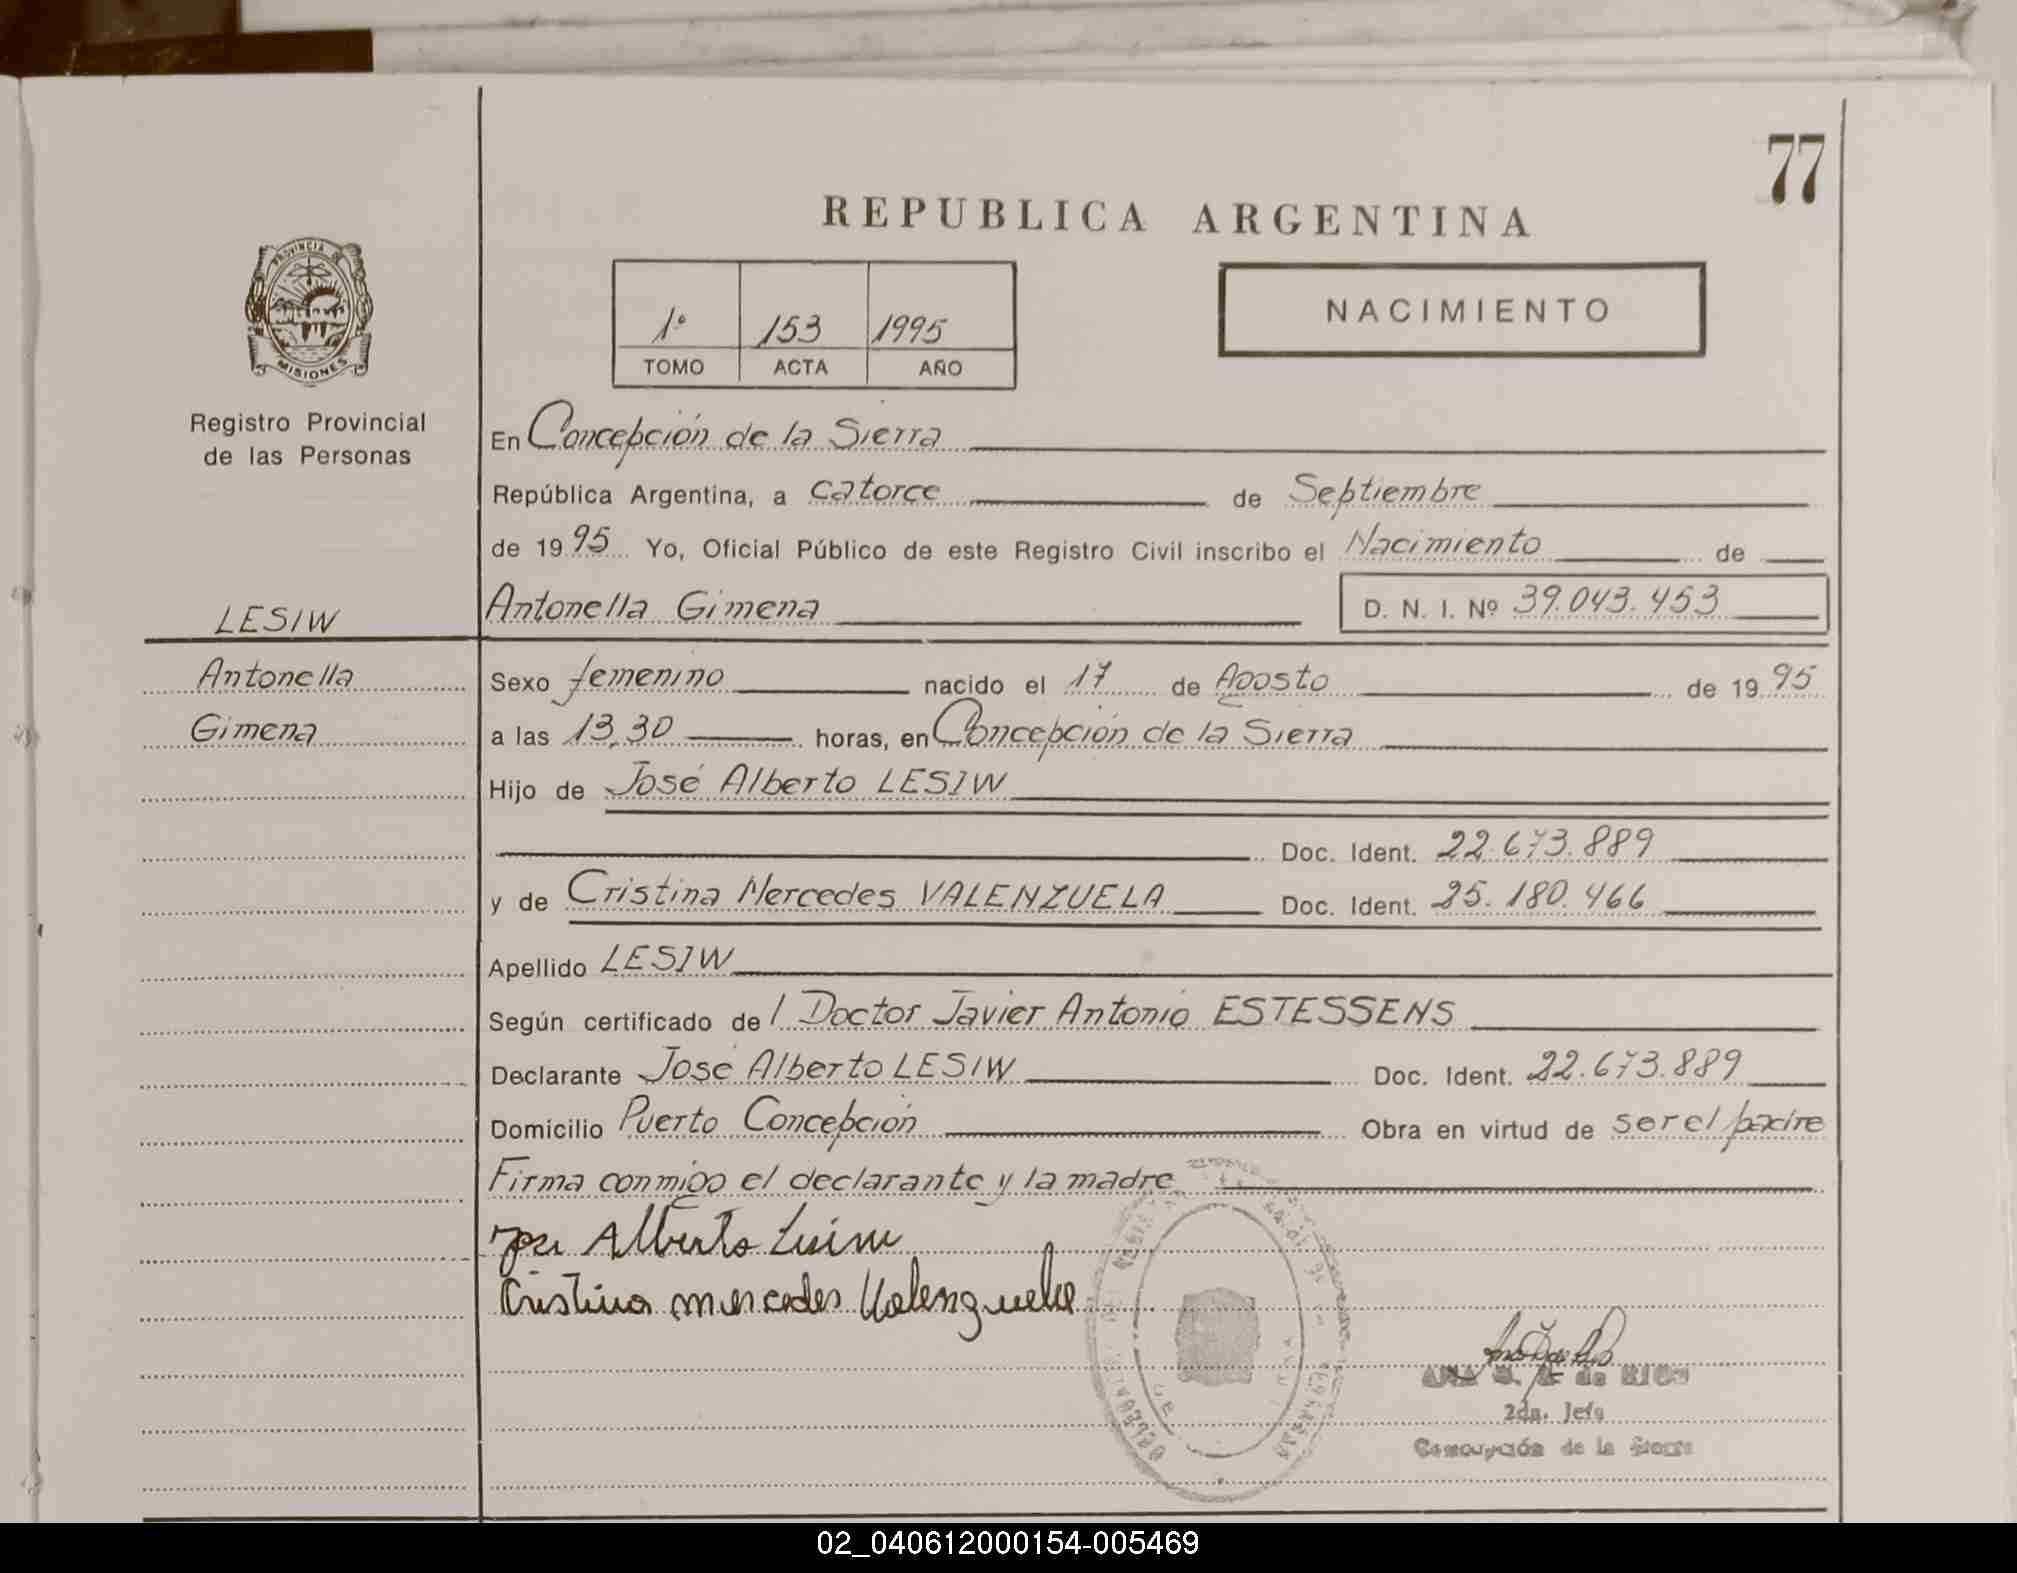 77
REPUBLICA ARGENTINA
PROVINCIA DE
MISIONES
Registro Provincial
de las Personas
1º 153 1995
TOMO ACTA AÑO
NACIMIENTO
En Concepción de la Sierra
República Argentina, a catorce de Septiembre
de 1995 Yo, Oficial Público de este Registro Civil inscribo el Nacimiento de
Antonella Gimena D. N. I. Nº 39.043.453
LESIW
Antonella
Gimena
Sexo femenino nacido el 17 de Agosto de 1995
a las 13,30 horas, en Concepción de la Sierra
Hijo de José Alberto LESIW
Doc. Ident. 22.673.889
y de Cristina Mercedes VALENZUELA Doc. Ident. 25.180.466
Apellido LESIW
Según certificado del Doctor Javier Antonio ESTESSENS
Declarante José Alberto LESIW Doc. Ident. 22.673.889
Domicilio Puerto Concepción Obra en virtud de ser el padre
Firma conmigo el declarante y la madre
Jose Alberto Lesiw
Cristina mercedes Valenzuela
ANA de RIOS
2da. Jefa
Concepción de la Sierra
02_040612000154-005469